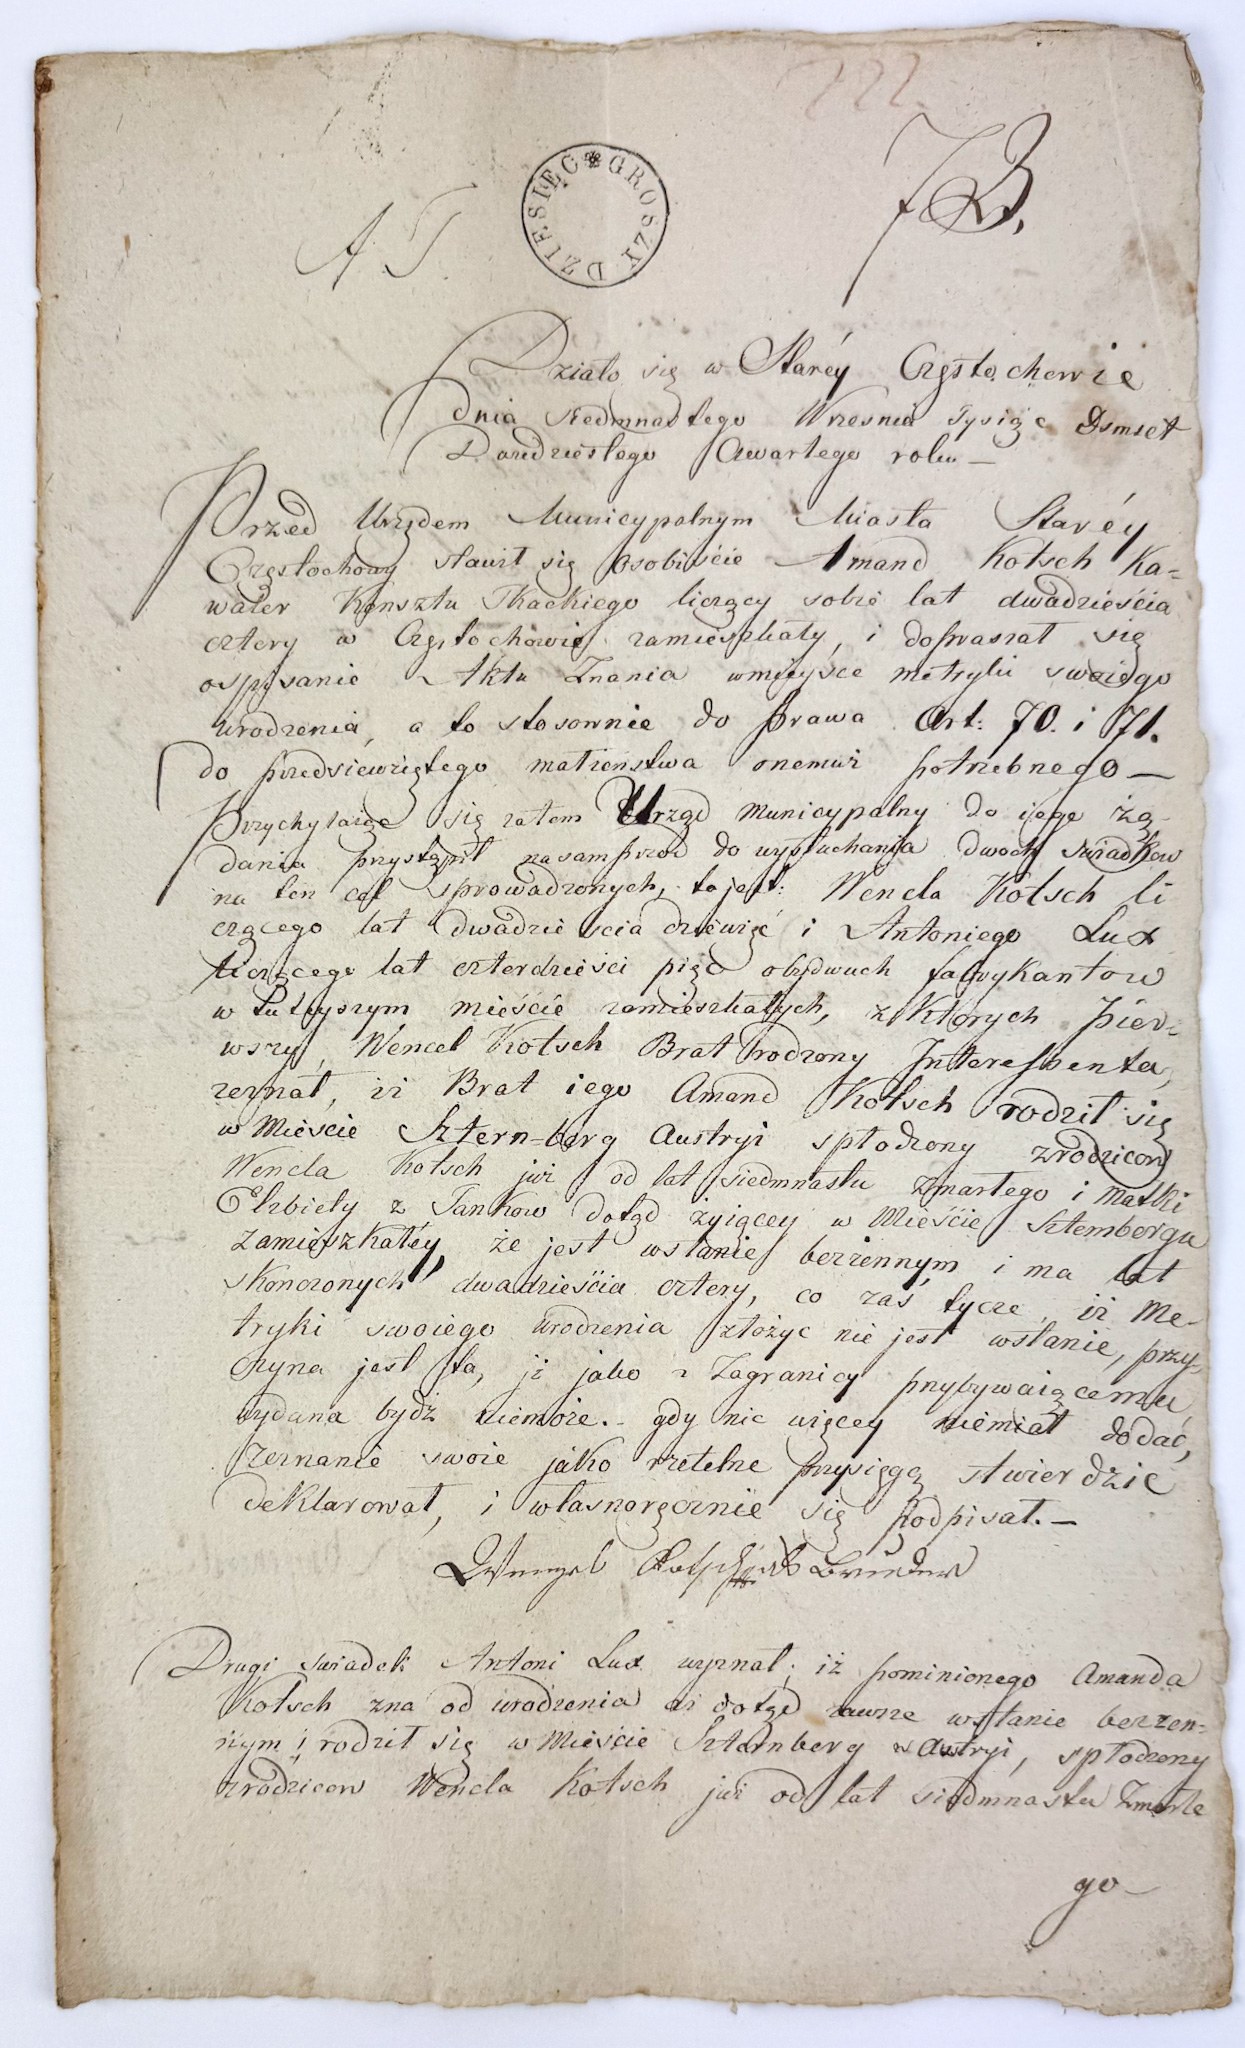 222.
DZIESIĘC GROSZY
A. T.
73.
Działo się w Staréy Częstochowie
dnia siedmnastego Wrzesnia Tysiąc Osmset
Dwudziestego Czwartego roku —
Przed Urzędem Municypalnym Miasta Staréy
Częstochowy stawił się osobiście Amand Kotsch Ka-
waler Kunsztu Tkackiego liczący sobie lat dwadzieścia
cztery w Częstochowie zamieszkały, i dopraszał się
o spisanie Aktu Znania wmieysce metryki swoiego
urodzenia, a to stosownie do prawa Art: 70. i 71.
do przedsiewziętego małżeństwa onemuż potrzebnego —
Przychylaiąc się zatem Urząd Municypalny do iego żą-
dania przystąpił nasamprzód do wysłuchania dwoch swiadkow
na ten cel sprowadzonych, to jest: Wencla Kotsch li
czącego lat dwadzieścia dziewięć i Antoniego Lux
liczącego lat czterdzieści pięć obydwuch fabrykantow
w tuteyszym mieście zamieszkałych, z których pier-
wszy, Wencel Kotsch Brat rodzony Interessenta,
zeznał, iż Brat iego Amand Kotsch rodził się
w Mieście Sztern-berg Austryi spłodzony zrodzicow
Wencla Kotsch już od lat siedmnastu zmarłego i Matki
Elżbiety z Jankow dotąd żyiącey w Mieście Szternbergu
zamięszkałéy, że jest wstanie bezżennym i ma lat
skonczonych dwadzieścia cztery, co zaś tycze, iż Me-
tryki swoiego urodzenia złożyc nie jest wstanie, przy-
czyna jest ta, iż jako z Zagranicy przybywaiącemu
wydana bydź niemoże. – gdy nic więcey niemiał dodać,
zeznanie swoie jako rzetelne przysięgą stwierdzic
deklarował, i własnoręcznie się podpisał. —
Wenzel Kotsch als Bruder
Drugi swiadek Antoni Lux wyznał, iż pominionego Amanda
Kotsch zna od urodzenia aż dotąd zawsze wstanie bezżen-
nym i rodził się w Mieście Szternberg w Austryi, spłodzony
zrodzicow Wencla Kotsch już od lat siedmnastu Zmarłe
go —